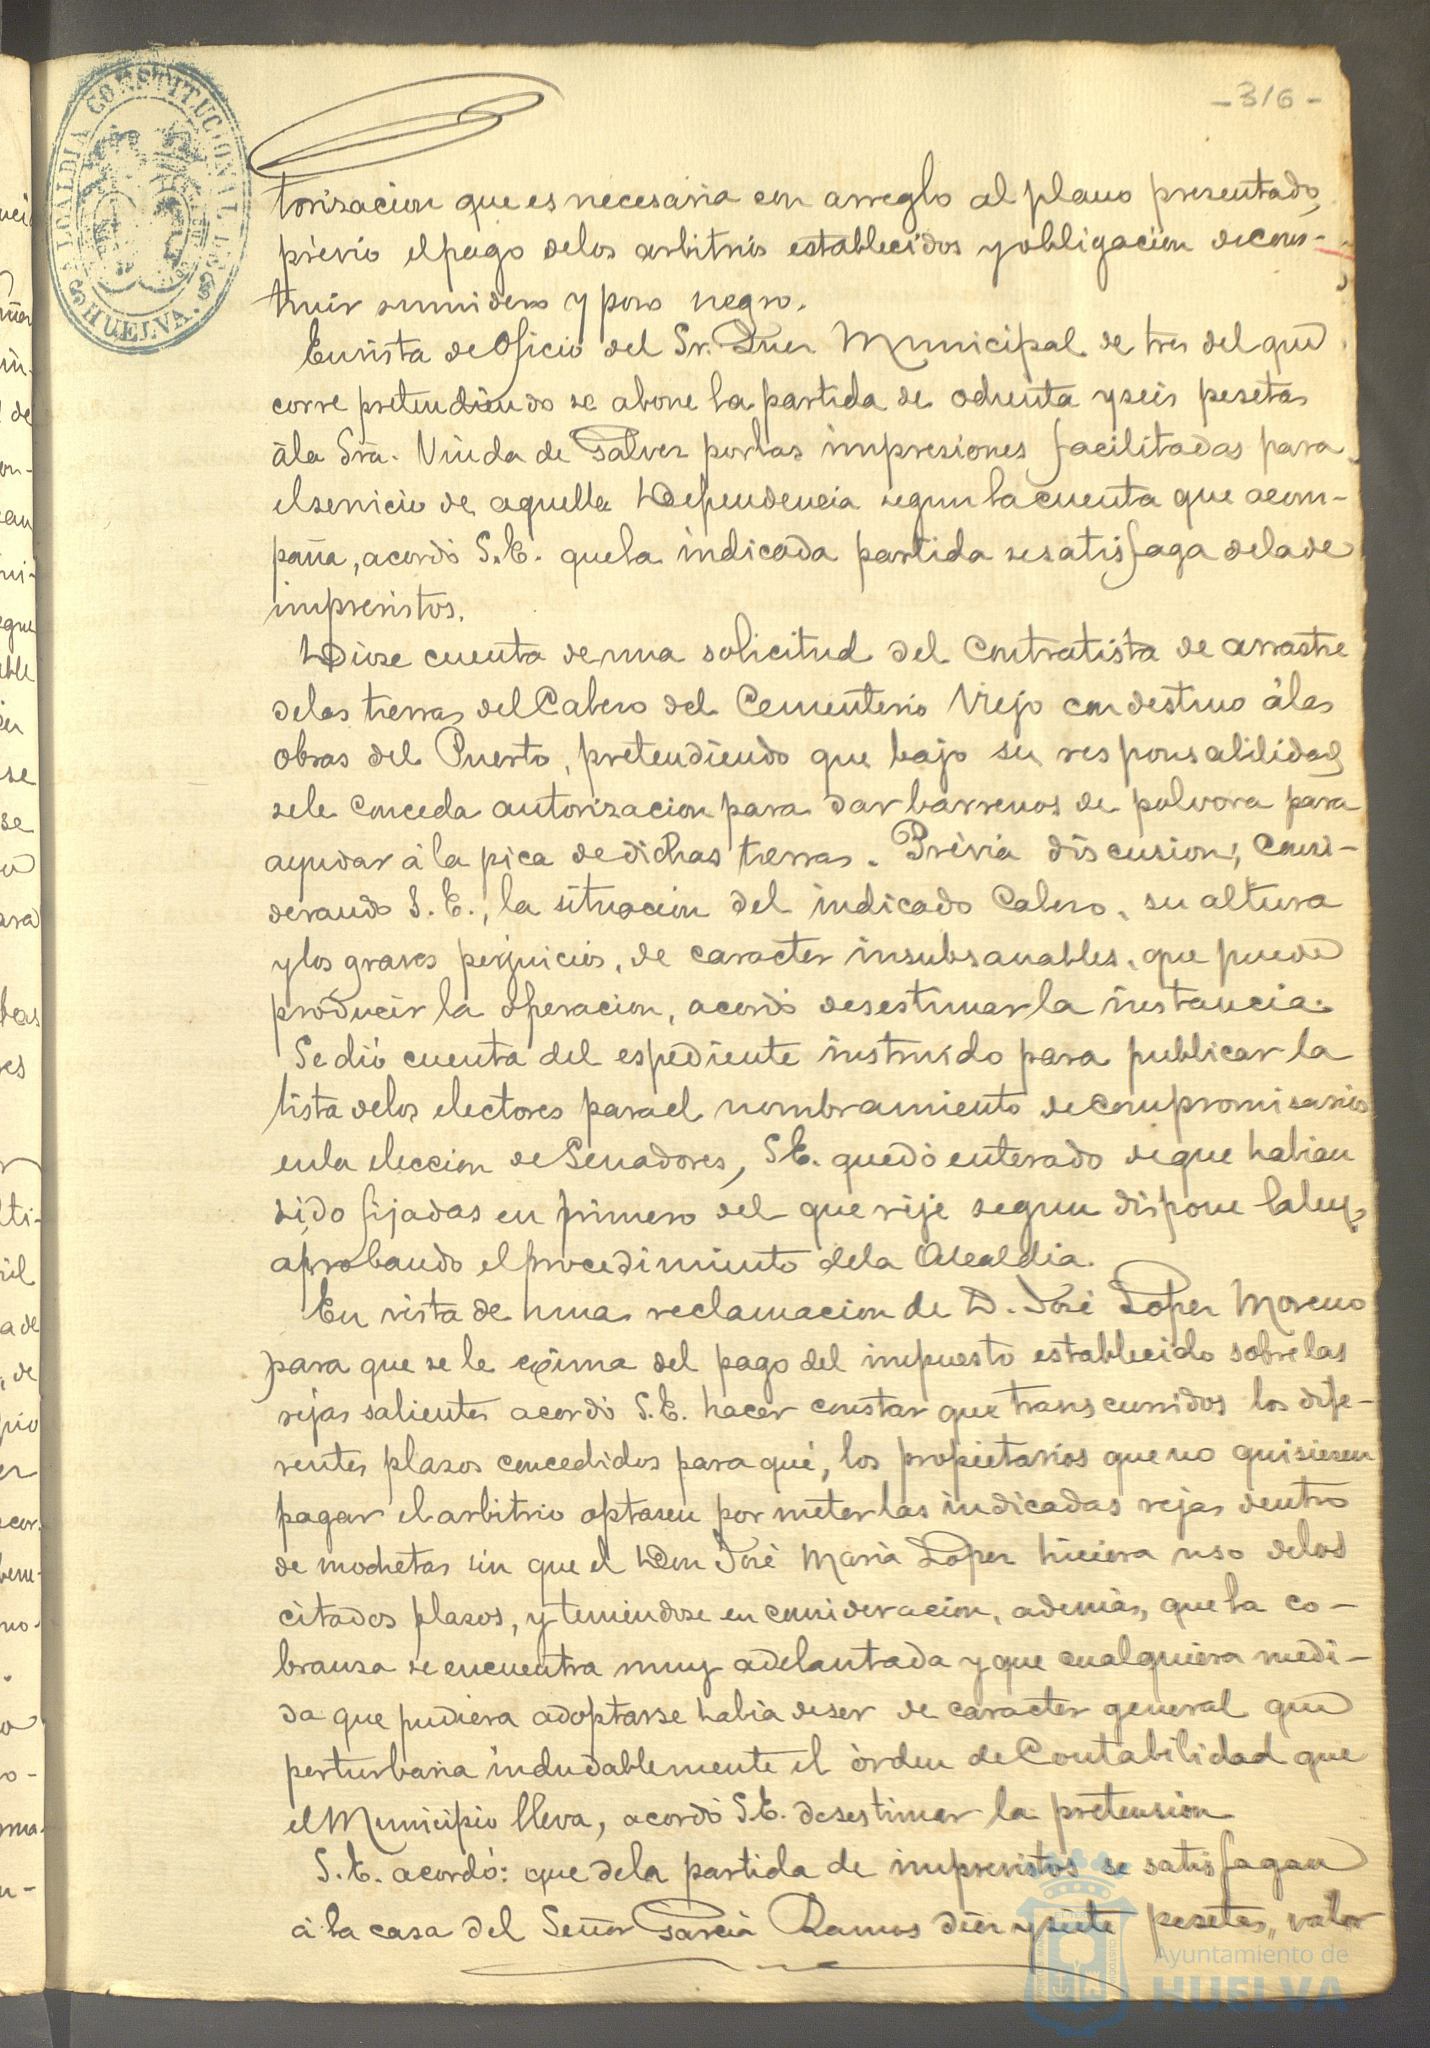 -316-
ALCALDIA CONSTITUCIONAL DE HUELVA.
torizacion que es necesaria con arreglo al plano presentado,
prévio el pago de los arbitrios establecidos y obligacion de cons-
truir sumidero y pozo negro.
En vista de Oficio del Sr. Juez Municipal de tres del que
corre pretendiendo se abone la partida de ochenta y seis pesetas
á la Sra. Viuda de Galvez por las impresiones facilitadas para
el servicio de aquella Dependencia segun la cuenta que acom-
paña, acordó S.E. que la indicada partida se satisfaga de la de
imprevistos.
Dióse cuenta de una solicitud del Contratista de arrastre
de las tierras del Cabezo del Cementerio Viejo con destino á las
obras del Puerto, pretendiendo que bajo su responsabilidad
se le conceda autorizacion para dar barrenos de polvora para
ayudar á la pica de dichas tierras. Prévia discusion, consi-
derando S.E., la situacion del indicado Cabezo, su altura
y los graves perjuicios, de caracter insubsanables, que puede
producir la operacion, acordó desestimar la instancia.
Se dió cuenta del espediente instruido para publicar la
lista de los electores para el nombramiento de compromisarios
en la eleccion de Senadores, S.E. quedó enterado de que habian
sido fijadas en primero del que rije segun dispone la ley,
aprobando el procedimiento de la Alcaldia.
En vista de una reclamacion de D. José Lopez Moreno
para que se le exima del pago del impuesto establecido sobre las
rejas salientes acordó S.E. hacer constar que transcurridos los dife-
rentes plazos concedidos para qué, los propietarios que no quisiesen
pagar el arbitrio optasen por meter las indicadas rejas dentro
de mochetas sin que el Don José Maria Lopez hiciera uso de los
citados plazos, y teniendose en consideracion, además, que la co-
branza se encuentra muy adelantada y que cualquiera medi-
da que pudiera adoptarse habia de ser de caracter general que
perturbaria indudablemente el órden de Contabilidad que
el Municipio lleva, acordó S.E. desestimar la pretension
S.E. acordó: que de la partida de imprevistos se satisfagan
á la casa del Señor Garcia Ramos diez y siete pesetas, valor
Ayuntamiento de
HUELVA